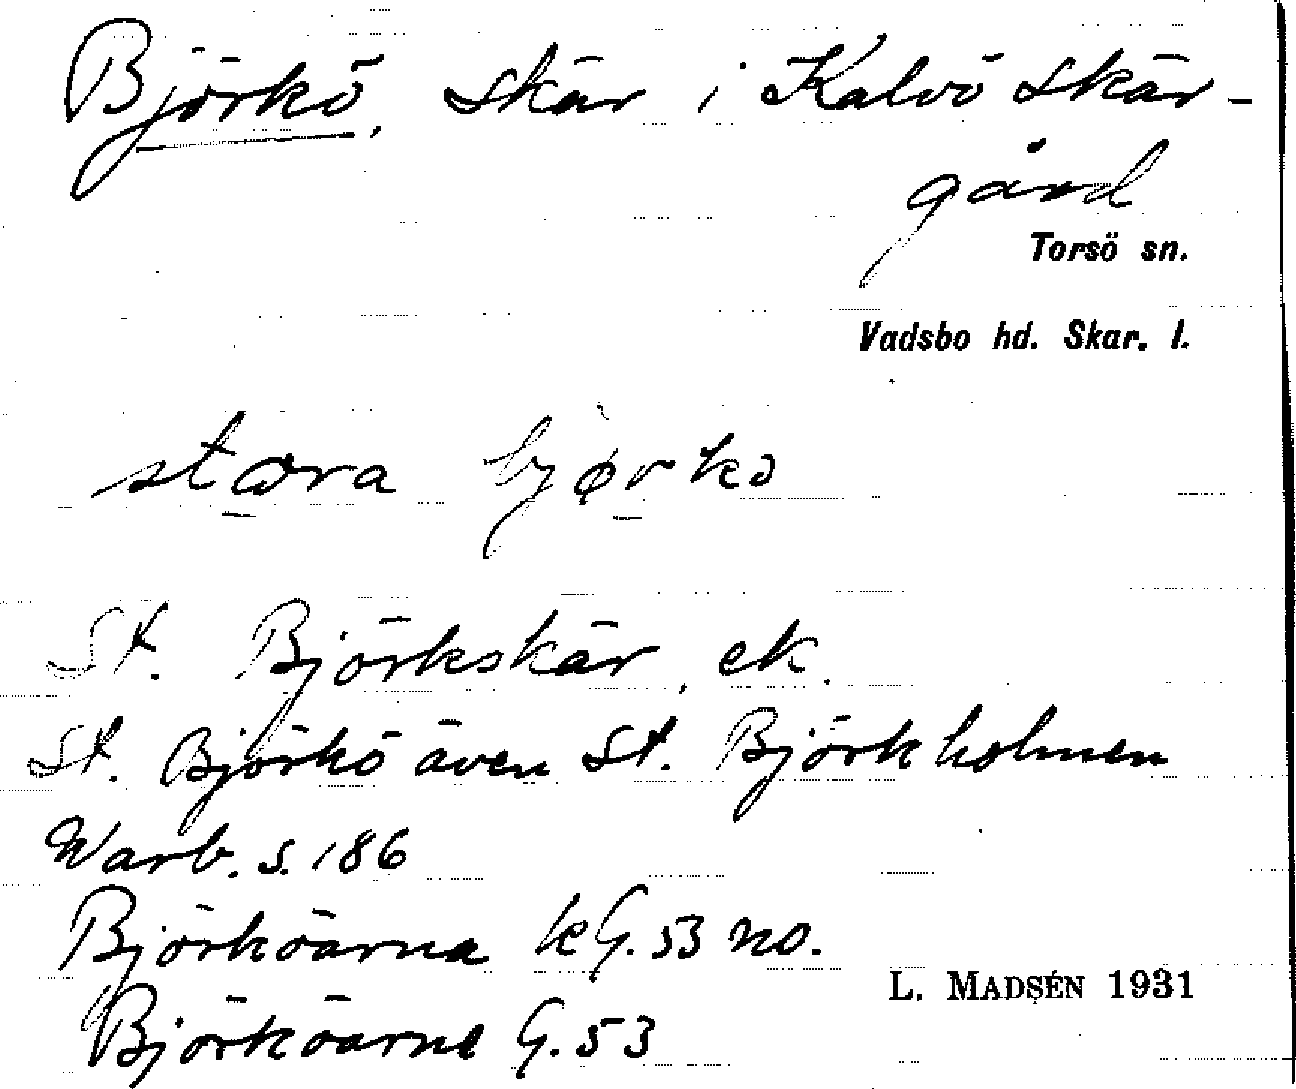 Björkö, skär i Kalvö skär-
gård
Torsö sn.
Vadsbo hd. Skar. l.
stora bjørkɔ
St. Björkskär, ek.
St. Björkö även St. Björkholmen
Warb. s. 186
Björköarna kG. 53 no.
Björköarne G. 53
L. MADSÉN 1931